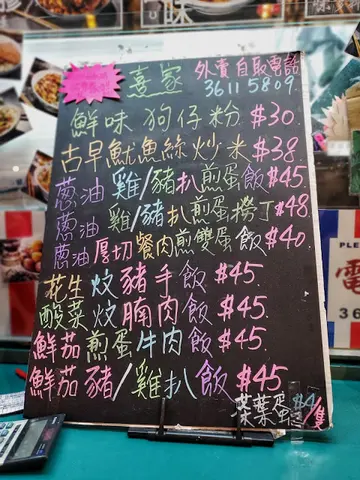 熹家 外賣自取電話
3611 5809
鮮味狗仔粉$30.
古早魷魚絲炒米$38
葱油雞/豬扒煎蛋飯$45.
葱油雞/豬扒煎蛋撈丁$48.
葱油厚切餐肉煎雙蛋飯$40
花生炆豬手飯$45.
酸菜炆腩肉飯$45.
鮮茄煎蛋牛肉飯$45.
鮮茄豬/雞扒飯$45
茶葉蛋$4/隻
味
電